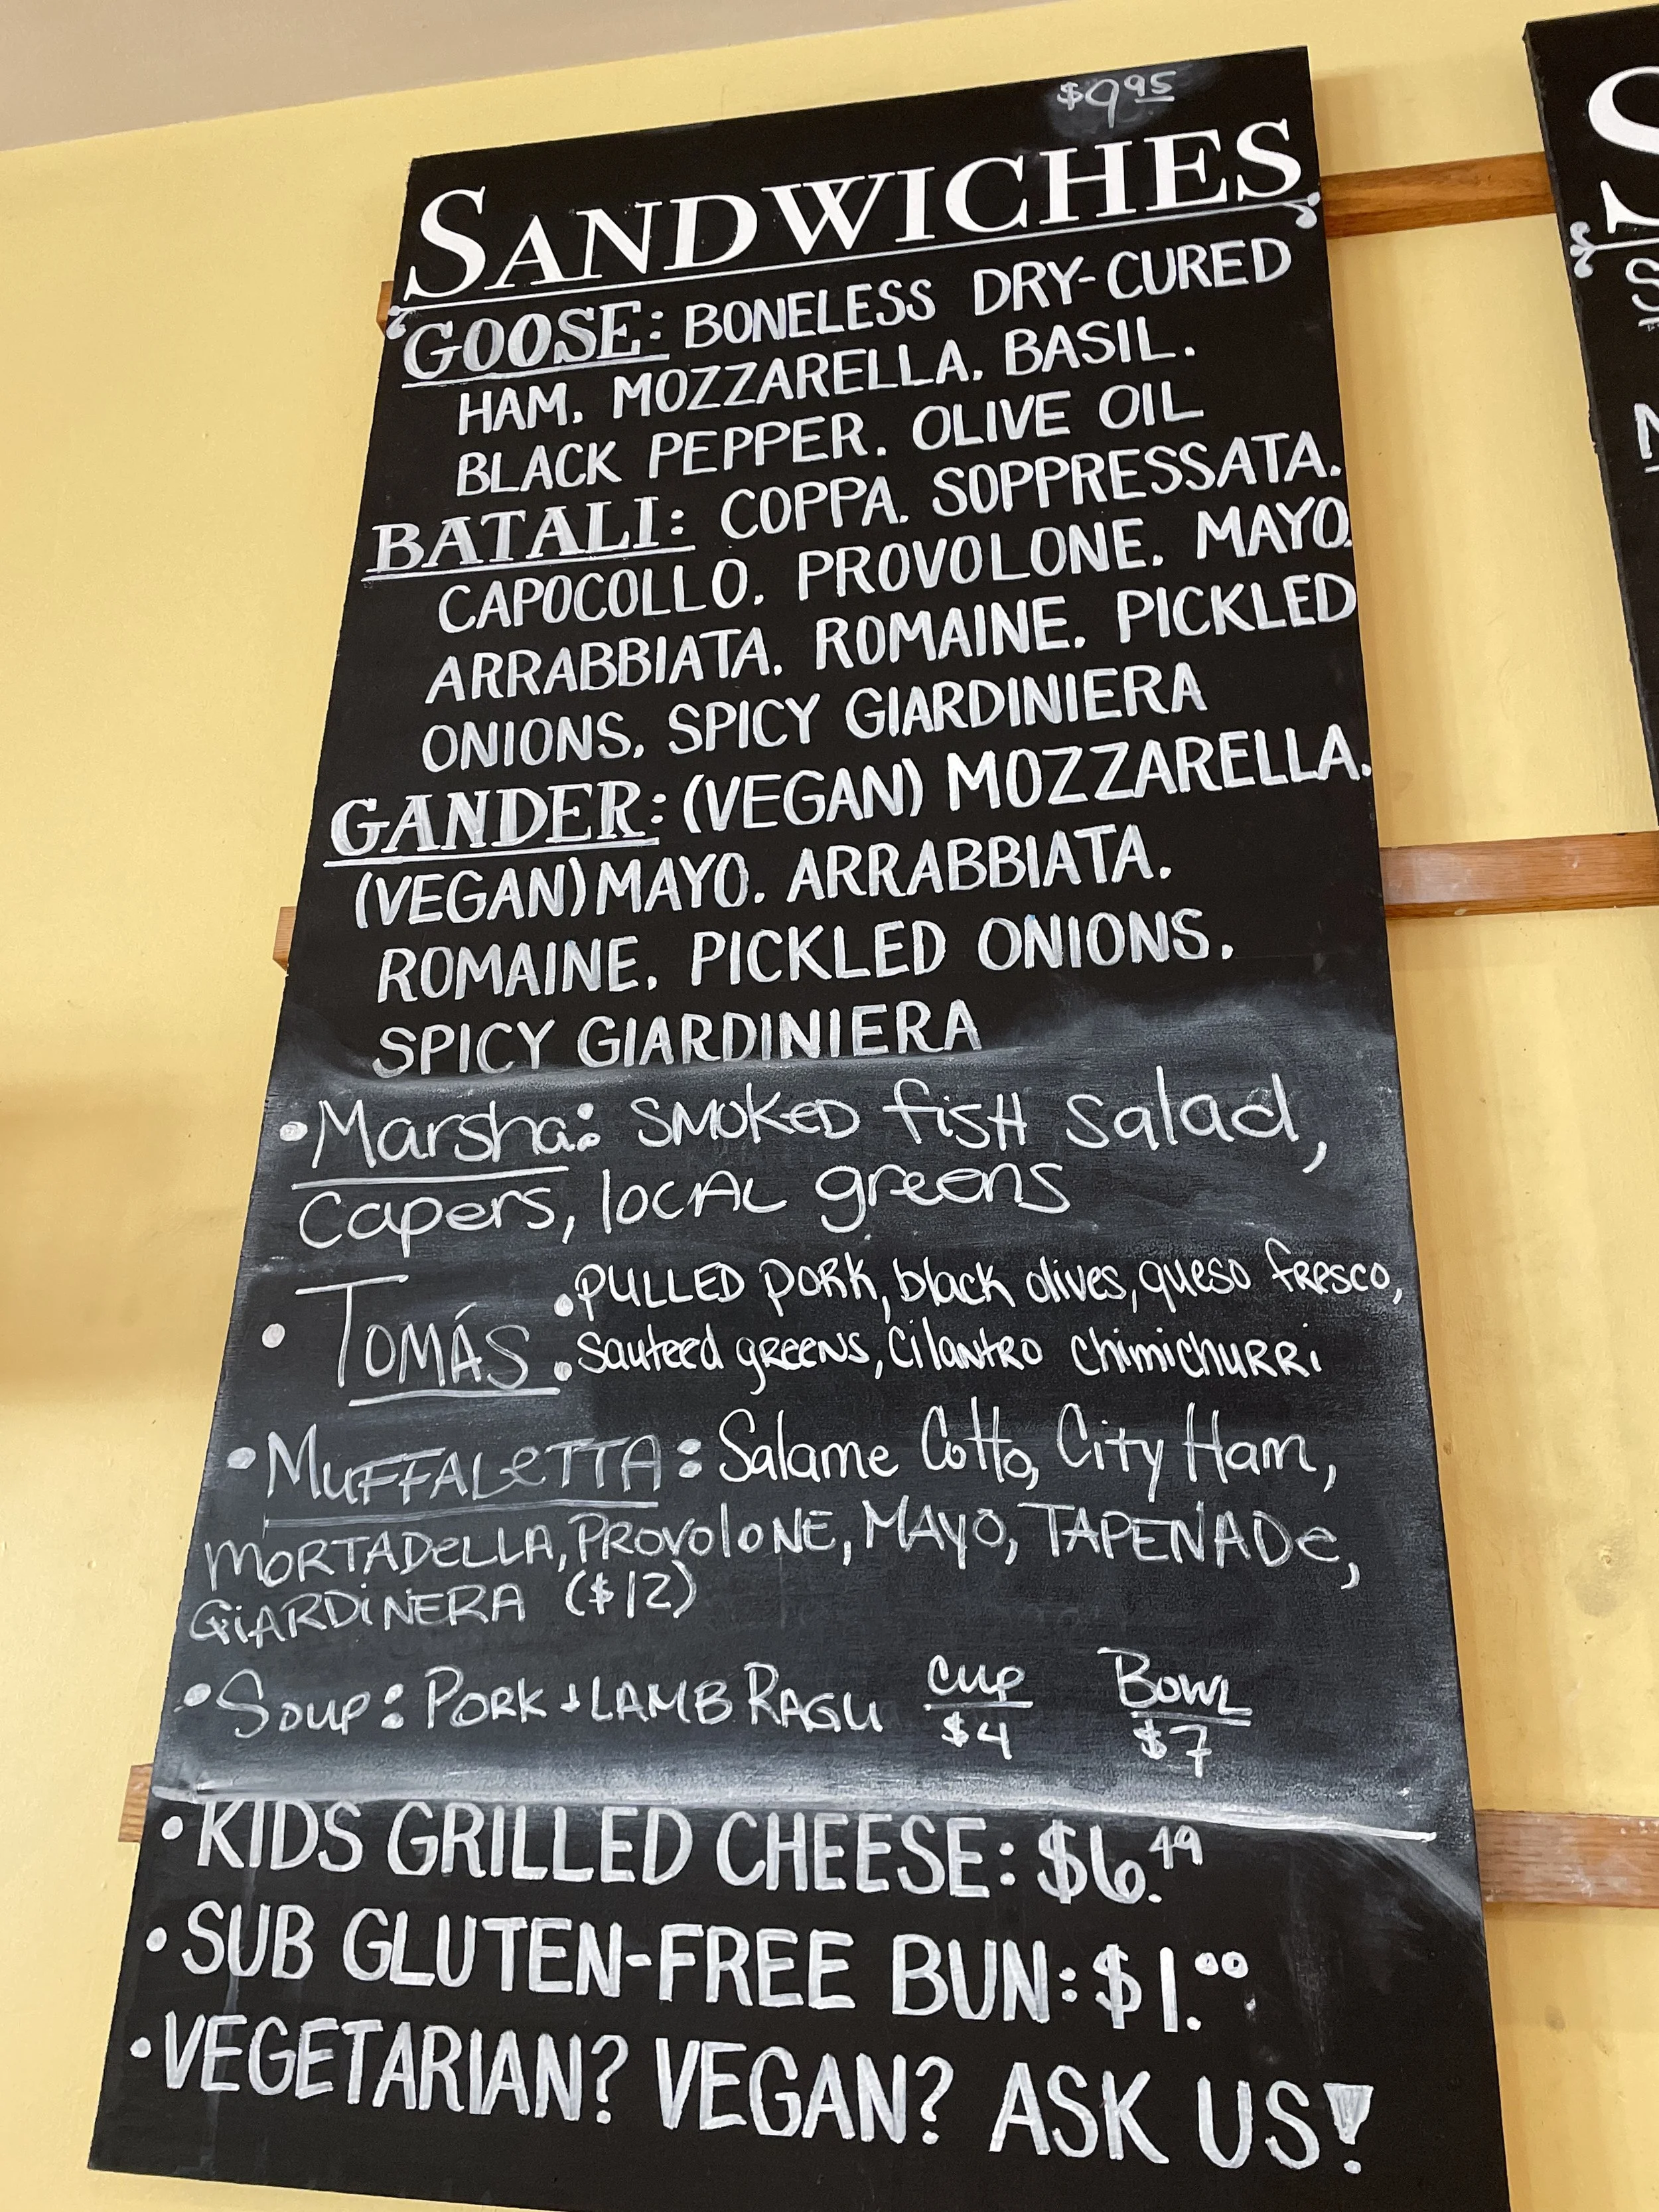 $9.95
SANDWICHES
GOOSE: BONELESS DRY-CURED
HAM. MOZZARELLA. BASIL.
BLACK PEPPER. OLIVE OIL
BATALI: COPPA. SOPPRESSATA.
CAPOCOLLO. PROVOLONE. MAYO.
ARRABBIATA. ROMAINE. PICKLED
ONIONS. SPICY GIARDINIERA
GANDER: (VEGAN) MOZZARELLA.
(VEGAN) MAYO. ARRABBIATA.
ROMAINE. PICKLED ONIONS.
SPICY GIARDINIERA
• Marsha: SMOKED fisH Salad,
Capers, loCAL greens
• TOMÁS: PULLED PORK, black olives, queso fresco,
sauteed greens, Cilantro chimichurri
• MUFFALeTTA: Salame Cotto, City Ham,
MORTADeLLA, PROVOLONE, MAYO, TAPENADe,
GiARDiNERA ($12)
• Soup: PORK + LAMB RAGU CUP $4 BOWL $7
• KIDS GRILLED CHEESE: $6.49
• SUB GLUTEN-FREE BUN: $1.00
• VEGETARIAN? VEGAN? ASK US!
S
S
N